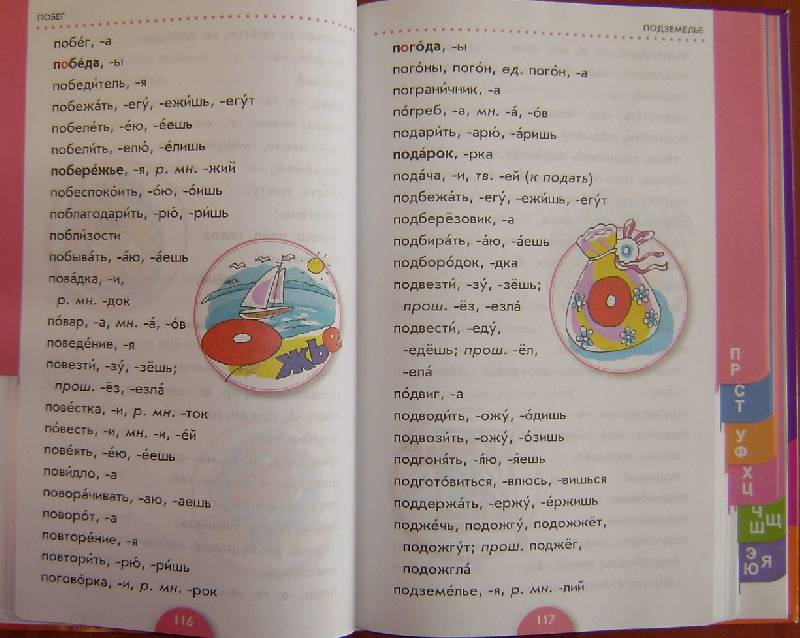 ПОБЕГ
побе́г, -а
побе́да, -ы
победи́тель, -я
побежа́ть, -егу́, -ежи́шь, -егу́т
побеле́ть, -е́ю, -е́ешь
побели́ть, -елю́, -е́лишь
побере́жье, -я, р. мн. -жий
побеспоко́ить, -о́ю, -о́ишь
поблагодари́ть, -рю́, -ри́шь
побли́зости
побыва́ть, -а́ю, -а́ешь
пова́дка, -и,
р. мн. -док
по́вар, -а, мн. -а́, -о́в
поведе́ние, -я
повезти́, -зу́, -зёшь;
прош. -ёз, -езла́
пове́стка, -и, р. мн. -ток
по́весть, -и, мн. -и, -е́й
пове́ять, -е́ю, -е́ешь
пови́дло, -а
повора́чивать, -аю, -аешь
поворо́т, -а
повторе́ние, -я
повтори́ть, -рю́, -ри́шь
погово́рка, -и, р. мн. -рок
о
жье
116
ПОДЗЕМЕЛЬЕ
пого́да, -ы
пого́ны, пого́н, ед. пого́н, -а
пограни́чник, -а
по́греб, -а, мн. -а́, -о́в
подари́ть, -арю́, -а́ришь
пода́рок, -рка
пода́ча, -и, тв. -ей (к пода́ть)
подбежа́ть, -егу́, -ежи́шь, -егу́т
подберёзовик, -а
подбира́ть, -а́ю, -а́ешь
подборо́док, -дка
подвезти́, -зу́, -зёшь;
прош. -ёз, -езла́
подвести́, -еду́,
-едёшь; прош. -ёл,
-ела́
по́двиг, -а
подводи́ть, -ожу́, -о́дишь
подвози́ть, -ожу́, -о́зишь
подгоня́ть, -я́ю, -я́ешь
подгото́виться, -влюсь, -вишься
поддержа́ть, -ержу́, -е́ржишь
подже́чь, подожгу́, подожжёт,
подожгу́т; прош. поджёг,
подожгла́
подземе́лье, -я, р. мн. -лий
о
117
П
Р
С
Т
У
Ф
Х
Ц
Ч
Ш Щ
Э
Ю Я